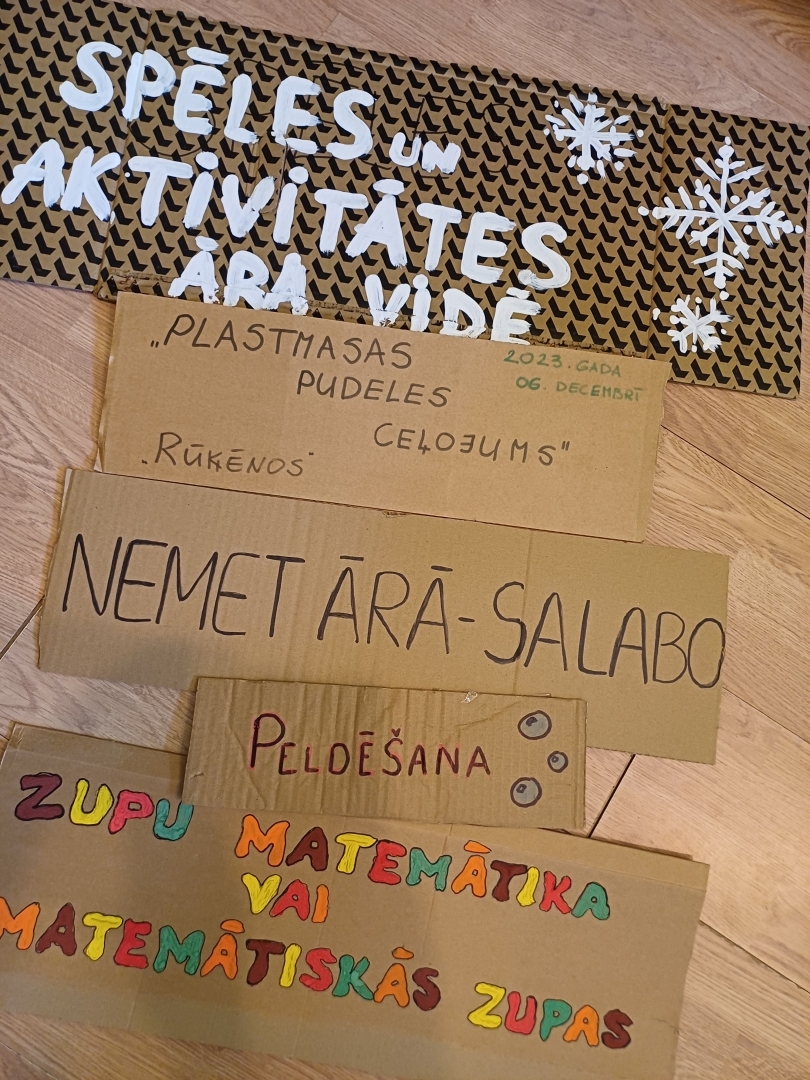 SPĒLES UN
AKTIVITĀTES
ĀRA VIDĒ
„PLASTMASAS
PUDELES
CEĻOJUMS"
2023. GADA
06. DECEMBRĪ
"RŪĶĒNOS"
NEMET ĀRĀ-SALABO
PELDĒŠANA
ZUPU MATEMĀTIKA
VAI
MATEMĀTISKĀS ZUPAS